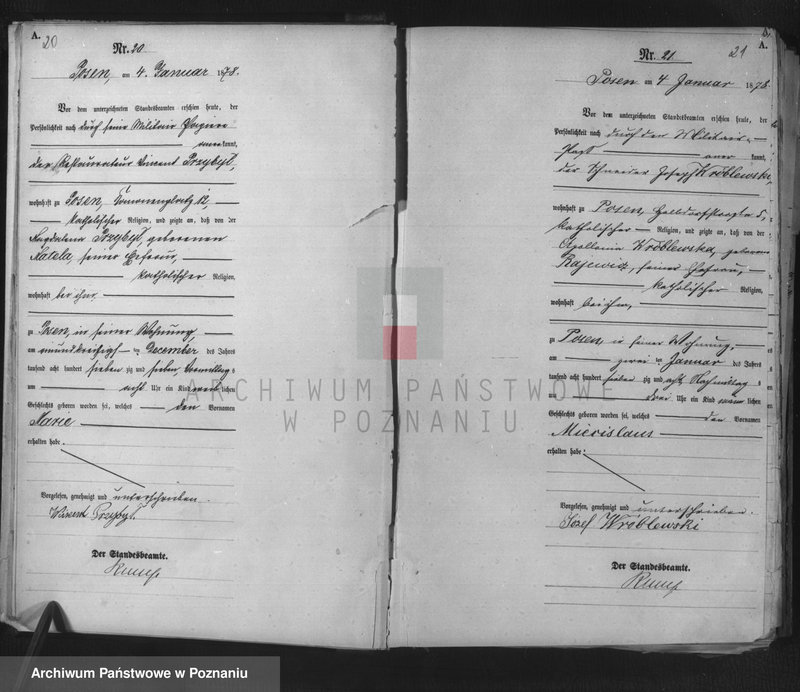 A.
20
Nr. 20
Posen, am 4. Januar 1878.
Vor dem unterzeichneten Standesbeamten erschien heute, der
Persönlichkeit nach durch seine Militair Papiere
kannt,
der Restaurateur Vincent Przybyl,
wohnhaft zu Posen, 12
katholischer Religion, und zeigte an, daß von der
Magdalena Przybyl, geborenen
Katela, seiner Ehefrau,
katholischer Religion,
wohnhaft bei ihm,
zu Posen, in seiner Wohnung,
am einunddreißigsten December des Jahres
tausend acht hundert sieben zig und sieben, Vormittags
um acht Uhr ein Kind weiblichen
Geschlechts geboren worden sei, welches den Vornamen
Marie
erhalten habe.
Vorgelesen, genehmigt und unterschrieben.
Vincent Przybyl.
Der Standesbeamte.
A.
21
Nr. 21
Posen am 4 Januar 1878.
Vor dem unterzeichneten Standesbeamten erschien heute, der
Persönlichkeit nach durch den Militair-
Paß kannt,
der Schneider Joseph Wróblewski,
wohnhaft zu Posen, Halbdorfstraße 5,
katholischer Religion, und zeigte an, daß von der
Apollonia Wróblewska, geborenen
Rajewicz, seiner Ehefrau,
katholischer Religion,
wohnhaft bei ihm,
zu Posen, in seiner Wohnung,
am zwei ten Januar des Jahres
tausend acht hundert sieben zig und acht Nachmittags
um drei Uhr ein Kind männlichen
Geschlechts geboren worden sei, welches den Vornamen
Miecislaus
erhalten habe.
Vorgelesen, genehmigt und unterschrieben.
Józef Wróblewski
Der Standesbeamte.
ARCHIWUM PAŃSTWOWE
W POZNANIU
Archiwum Państwowe w Poznaniu